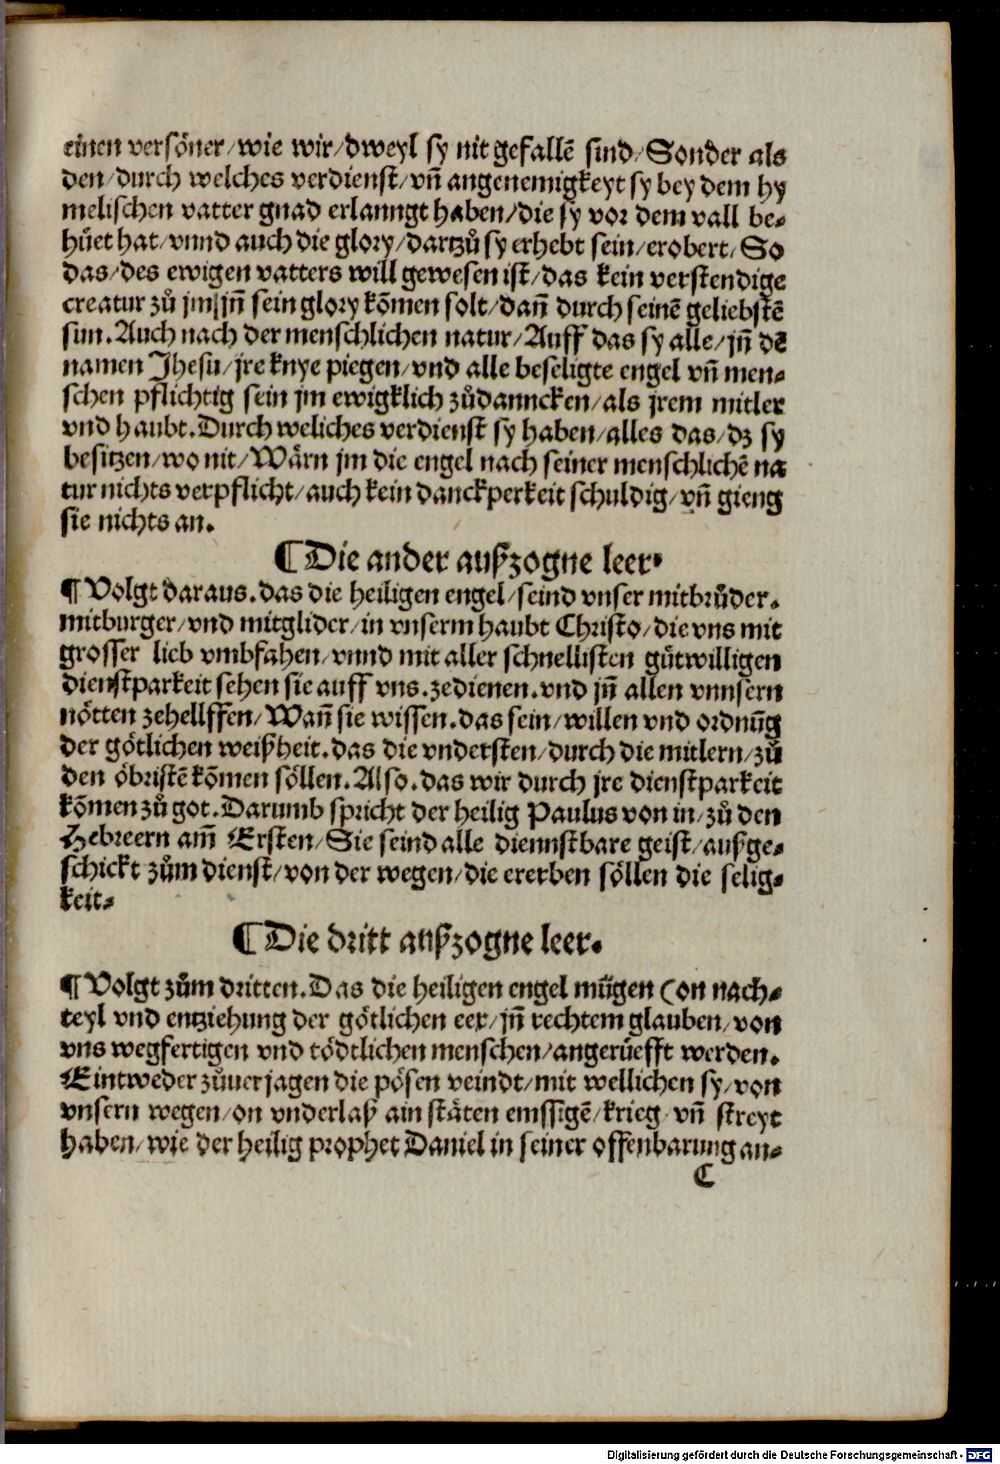 einen versöner/wie wir/dweyl sy nit gefallẽ sind/Sonder als
den/durch welches verdienst/vñ angenemigkeyt sy bey dem hy
melischen vatter gnad erlanngt haben/die sy vor dem vall be⸗
hüet hat/vnnd auch die glory/dartzů sy erhebt sein/erobert/So
das/des ewigen vatters will gewesen ist/das kein verstendige
creatur zů jm/jñ sein glory kõmen solt/dañ durch seinẽ geliebstẽ
sun.Auch nach der menschlichen natur/Auff das sy alle/jñ dẽ
namen Jhesu/jre knye piegen/vnd alle beseligte engel vñ men⸗
schen pflichtig sein jm ewigklich zůdanncken/als jrem mitler
vnd haubt.Durch weliches verdienst sy haben/alles das/dz sy
besitzen/wo nit/Wärn jm die engel nach seiner menschlichẽ na
tur nichts verpflicht/auch kein danckperkeit schuldig/vñ gieng
sie nichts an.
¶Die ander außzogne leer⸗
¶Volgt daraus.das die heiligen engel/seind vnser mitbrůder.
mitburger/vnd mitglider/in vnserm haubt Christo/die vns mit
grosser lieb vmbfahen/vnnd mit aller schnellisten gůtwilligen
dienstparkeit sehen sie auff vns.zedienen.vnd jñ allen vnnsern
nötten zehellffen/Wañ sie wissen.das sein/willen vnd ordnũg
der götlichen weißheit.das die vndersten/durch die mitlern/zů
den öbristẽ kõmen söllen.Also.das wir durch jre dienstparkeit
kõmen zů got.Darumb spricht der heilig Paulus von in/zů den
Hebreern am̃ Ersten/Sie seind alle diennstbare geist/außge⸗
schickt zům dienst/von der wegen/die ererben söllen die selig⸗
keit⸗
¶Die dritt außzogne leer.
¶Volgt zům dritten.Das die heiligen engel můgen (on nach⸗
teyl vnd entziehung der götlichen eer/jñ rechtem glauben/von
vns wegfertigen vnd tödtlichen menschen/angerüefft werden.
Eintweder zůuerjagen die pösen veindt/mit wellichen sy/von
vnsern wegen/on vnderlaß ain stäten emssigẽ/krieg/vñ streyt
haben/wie der heilig prophet Daniel in seiner offenbarung an⸗
C
Digitalisierung gefördert durch die Deutsche Forschungsgemeinschaft - DFG